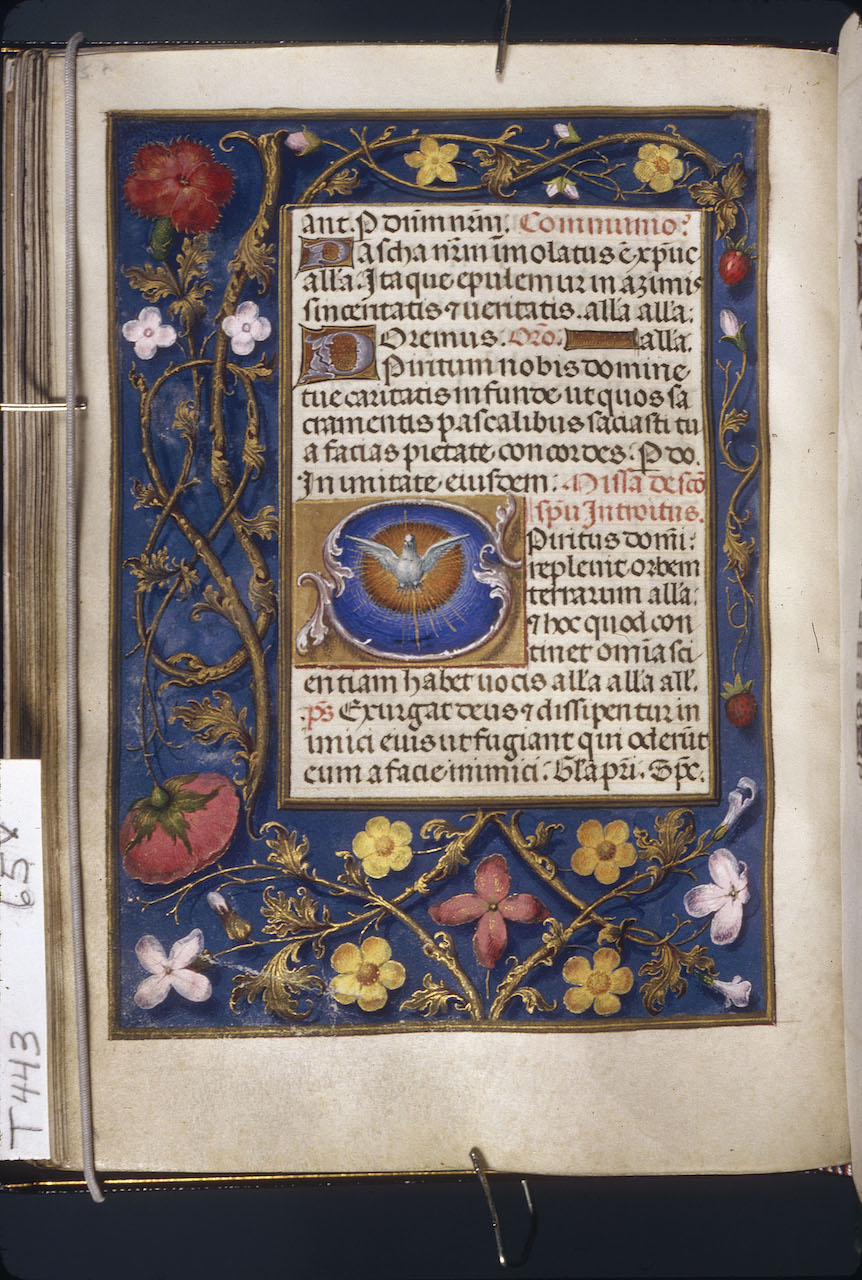 ant. P dūm nrm̄. Communio:
Pascha nrm̄ īmolatus ē xp̄uc
all'a. Itaque epulemur in azimis
sinceritatis ⁊ ueritatis. all'a all'a:
Oremus. Orō. all'a.
Spiritum nobis domine
tue caritatis infunde ut quos sa
cramentis pascalibus saciasti tu
a facias pietate concordes. P do.
In unitate eiusdem: Missa de scō
spū Introitus.
Spiritus domī:
repleuit orbem
terrarum all'a:
⁊ hoc quod con
tinet omīa sci
entiam habet uocis all'a all'a all'.
ps Exurgat deus ⁊ dissipentur in
imici eius ut fugiant qui oderūt
eum a facie inimici: Gl'a pri. Spc.
65v
T443